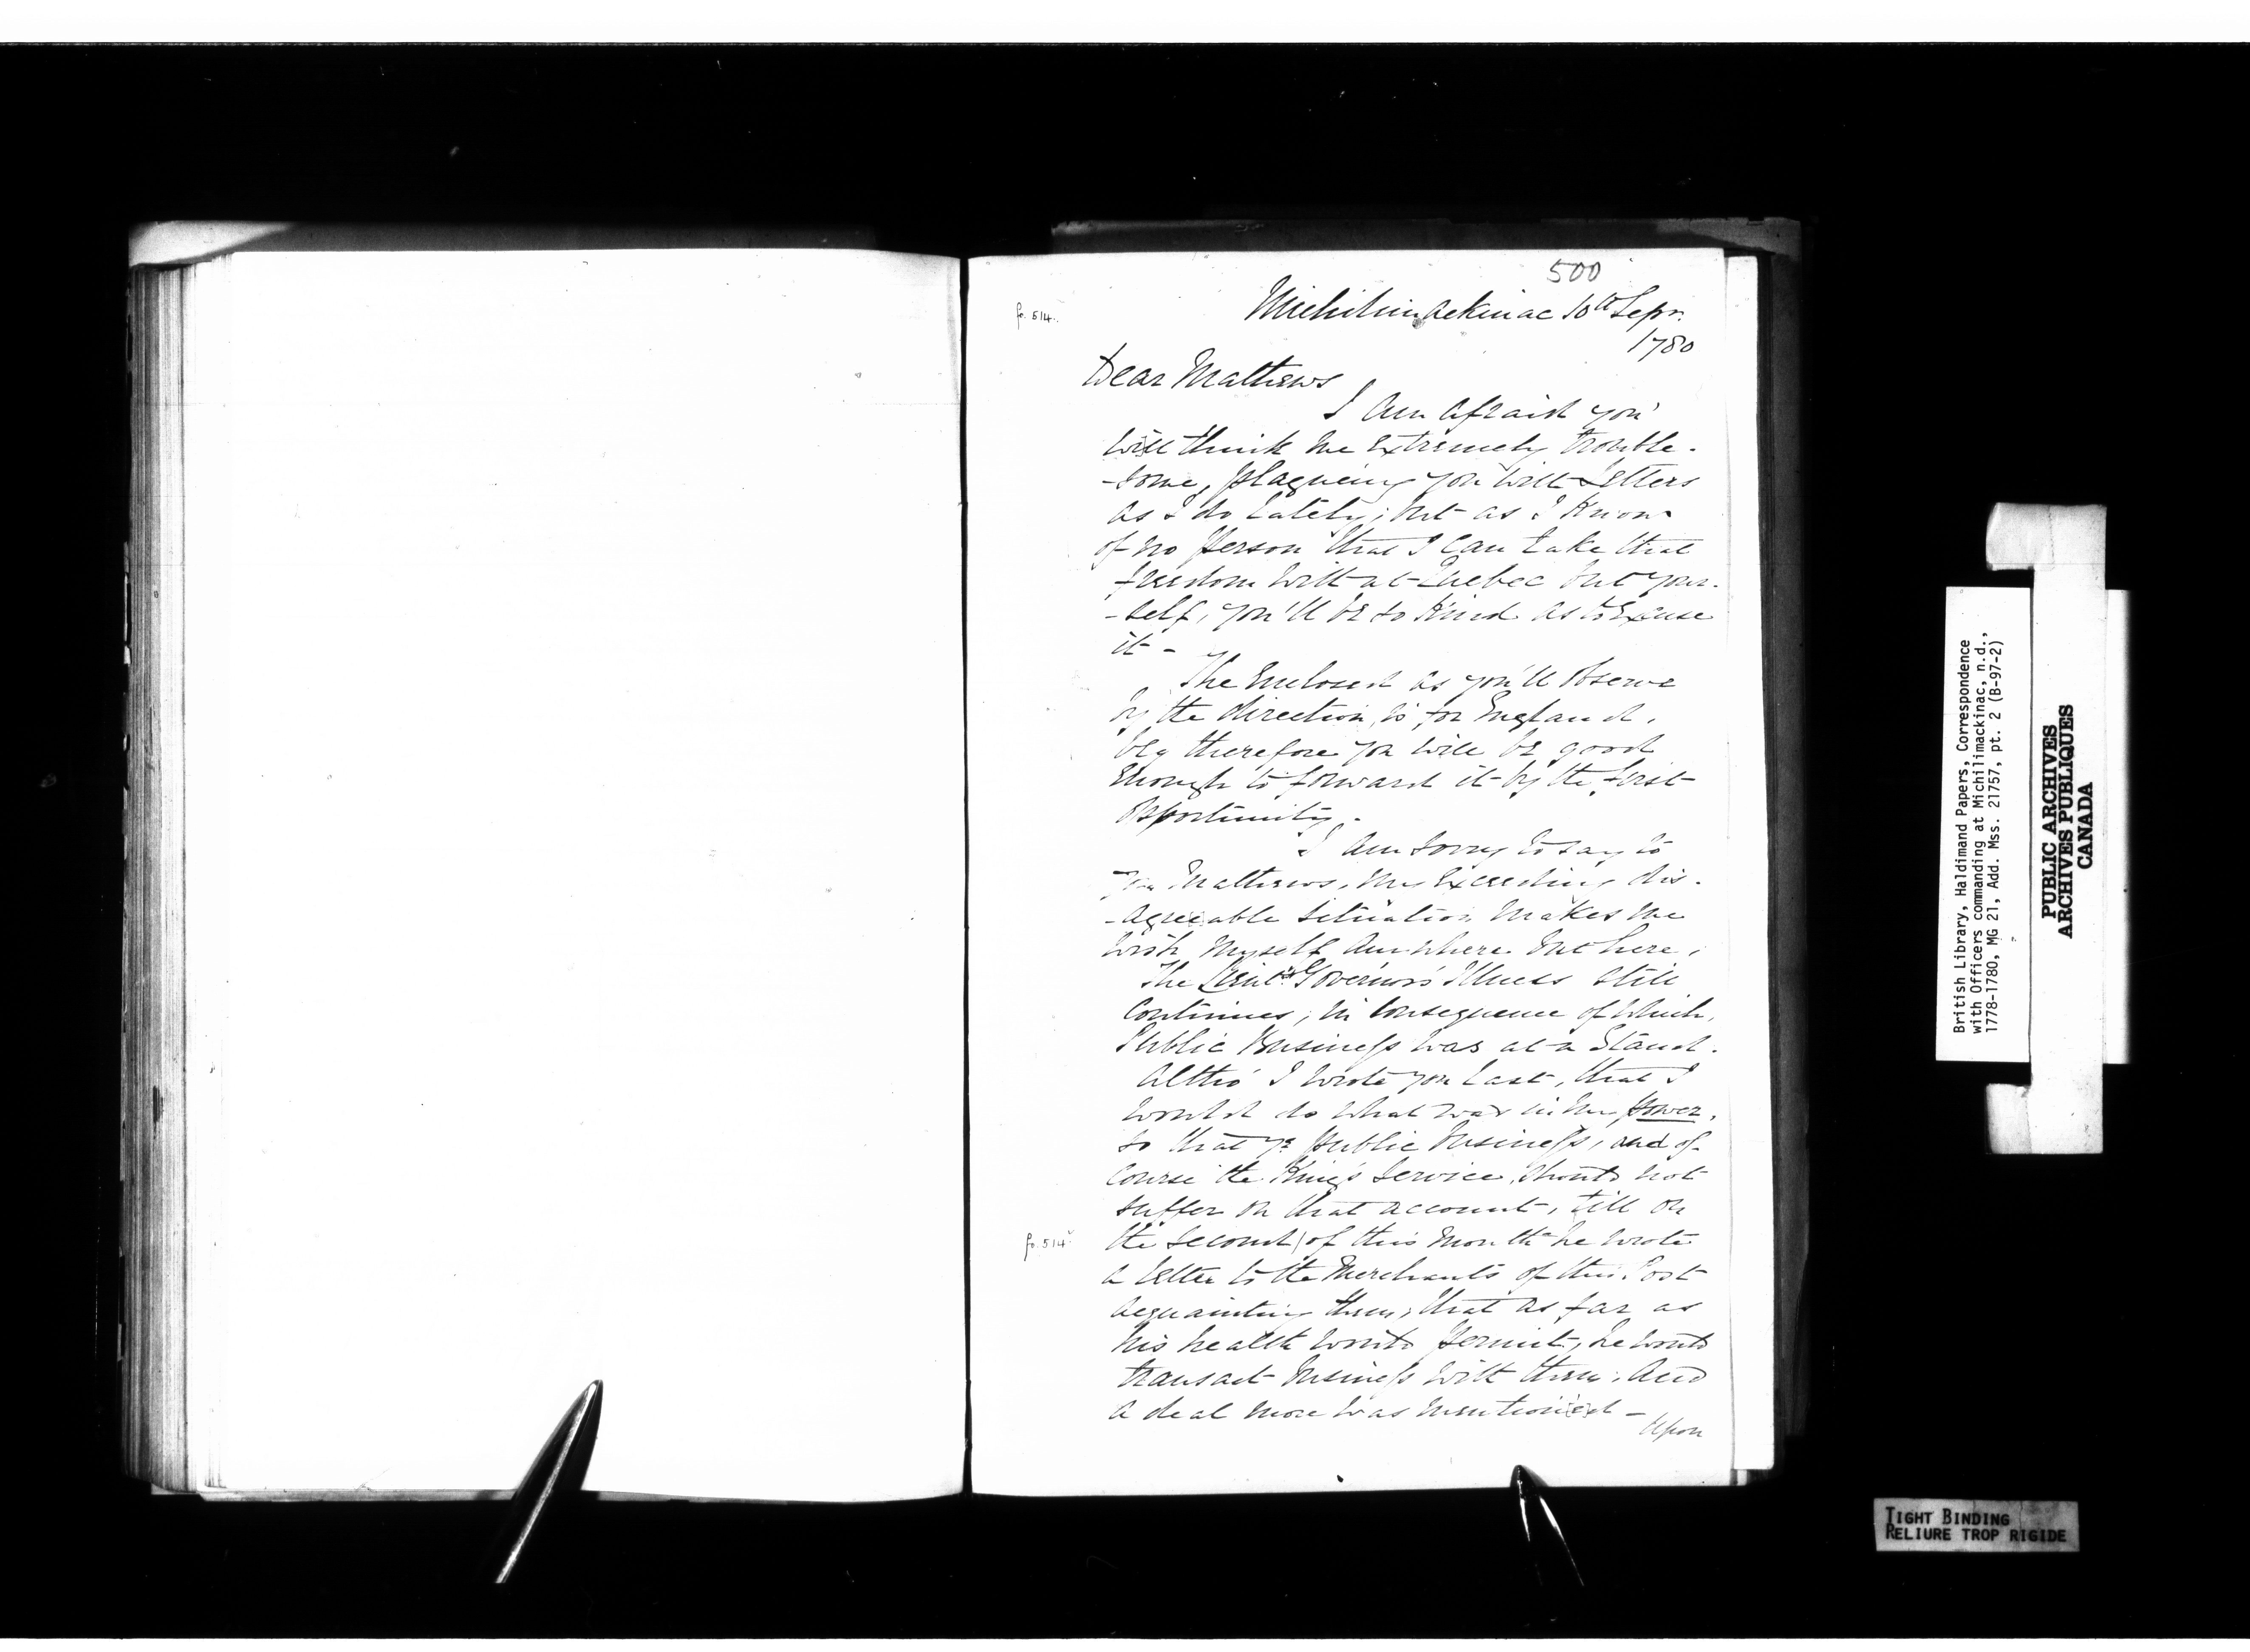 500
fo. 514.
Michilimackinac 10th Sepr.
1780
Dear Mathews
I Am Afraid you
will think me Extremely trouble-
-some, plagueing you with Letters
as I do Lately; but as I know
of no Person that I can take that
freedom with at Quebec but your-
-self, you'll be so kind as to Excuse
it -
The Enclosed as you'll Observe
by the direction, is for England,
beg therefore you will be good
Enough to forward it by the first
Opportunity.
I Am Sorry to say to
you Mathews, my Exceeding dis-
-agreeable Situation makes me
wish myself Anywhere but here,
The Lieut. Governor's Illness still
Continues, in Consequence of which,
Public Business was at a Stand.
Altho' I wrote you Last, that I
would do what was in my power,
so that ye public Business, and of
Course the King's Service, should not
suffer on that account, till on
fo. 514v
the second / of this Month he wrote
a letter to the Merchants of this Post
Acquainting them, that as far as
his health would Permit, he would
transact Business with them; And
a deal more was mentioned -
Upon
British Library, Haldimand Papers, Correspondence
with Officers commanding at Michilimackinac, n.d.,
1778-1780, MG 21, Add. Mss. 21757, pt. 2 (B-97-2)
PUBLIC ARCHIVES
ARCHIVES PUBLIQUES
CANADA
TIGHT BINDING
RELIURE TROP RIGIDE